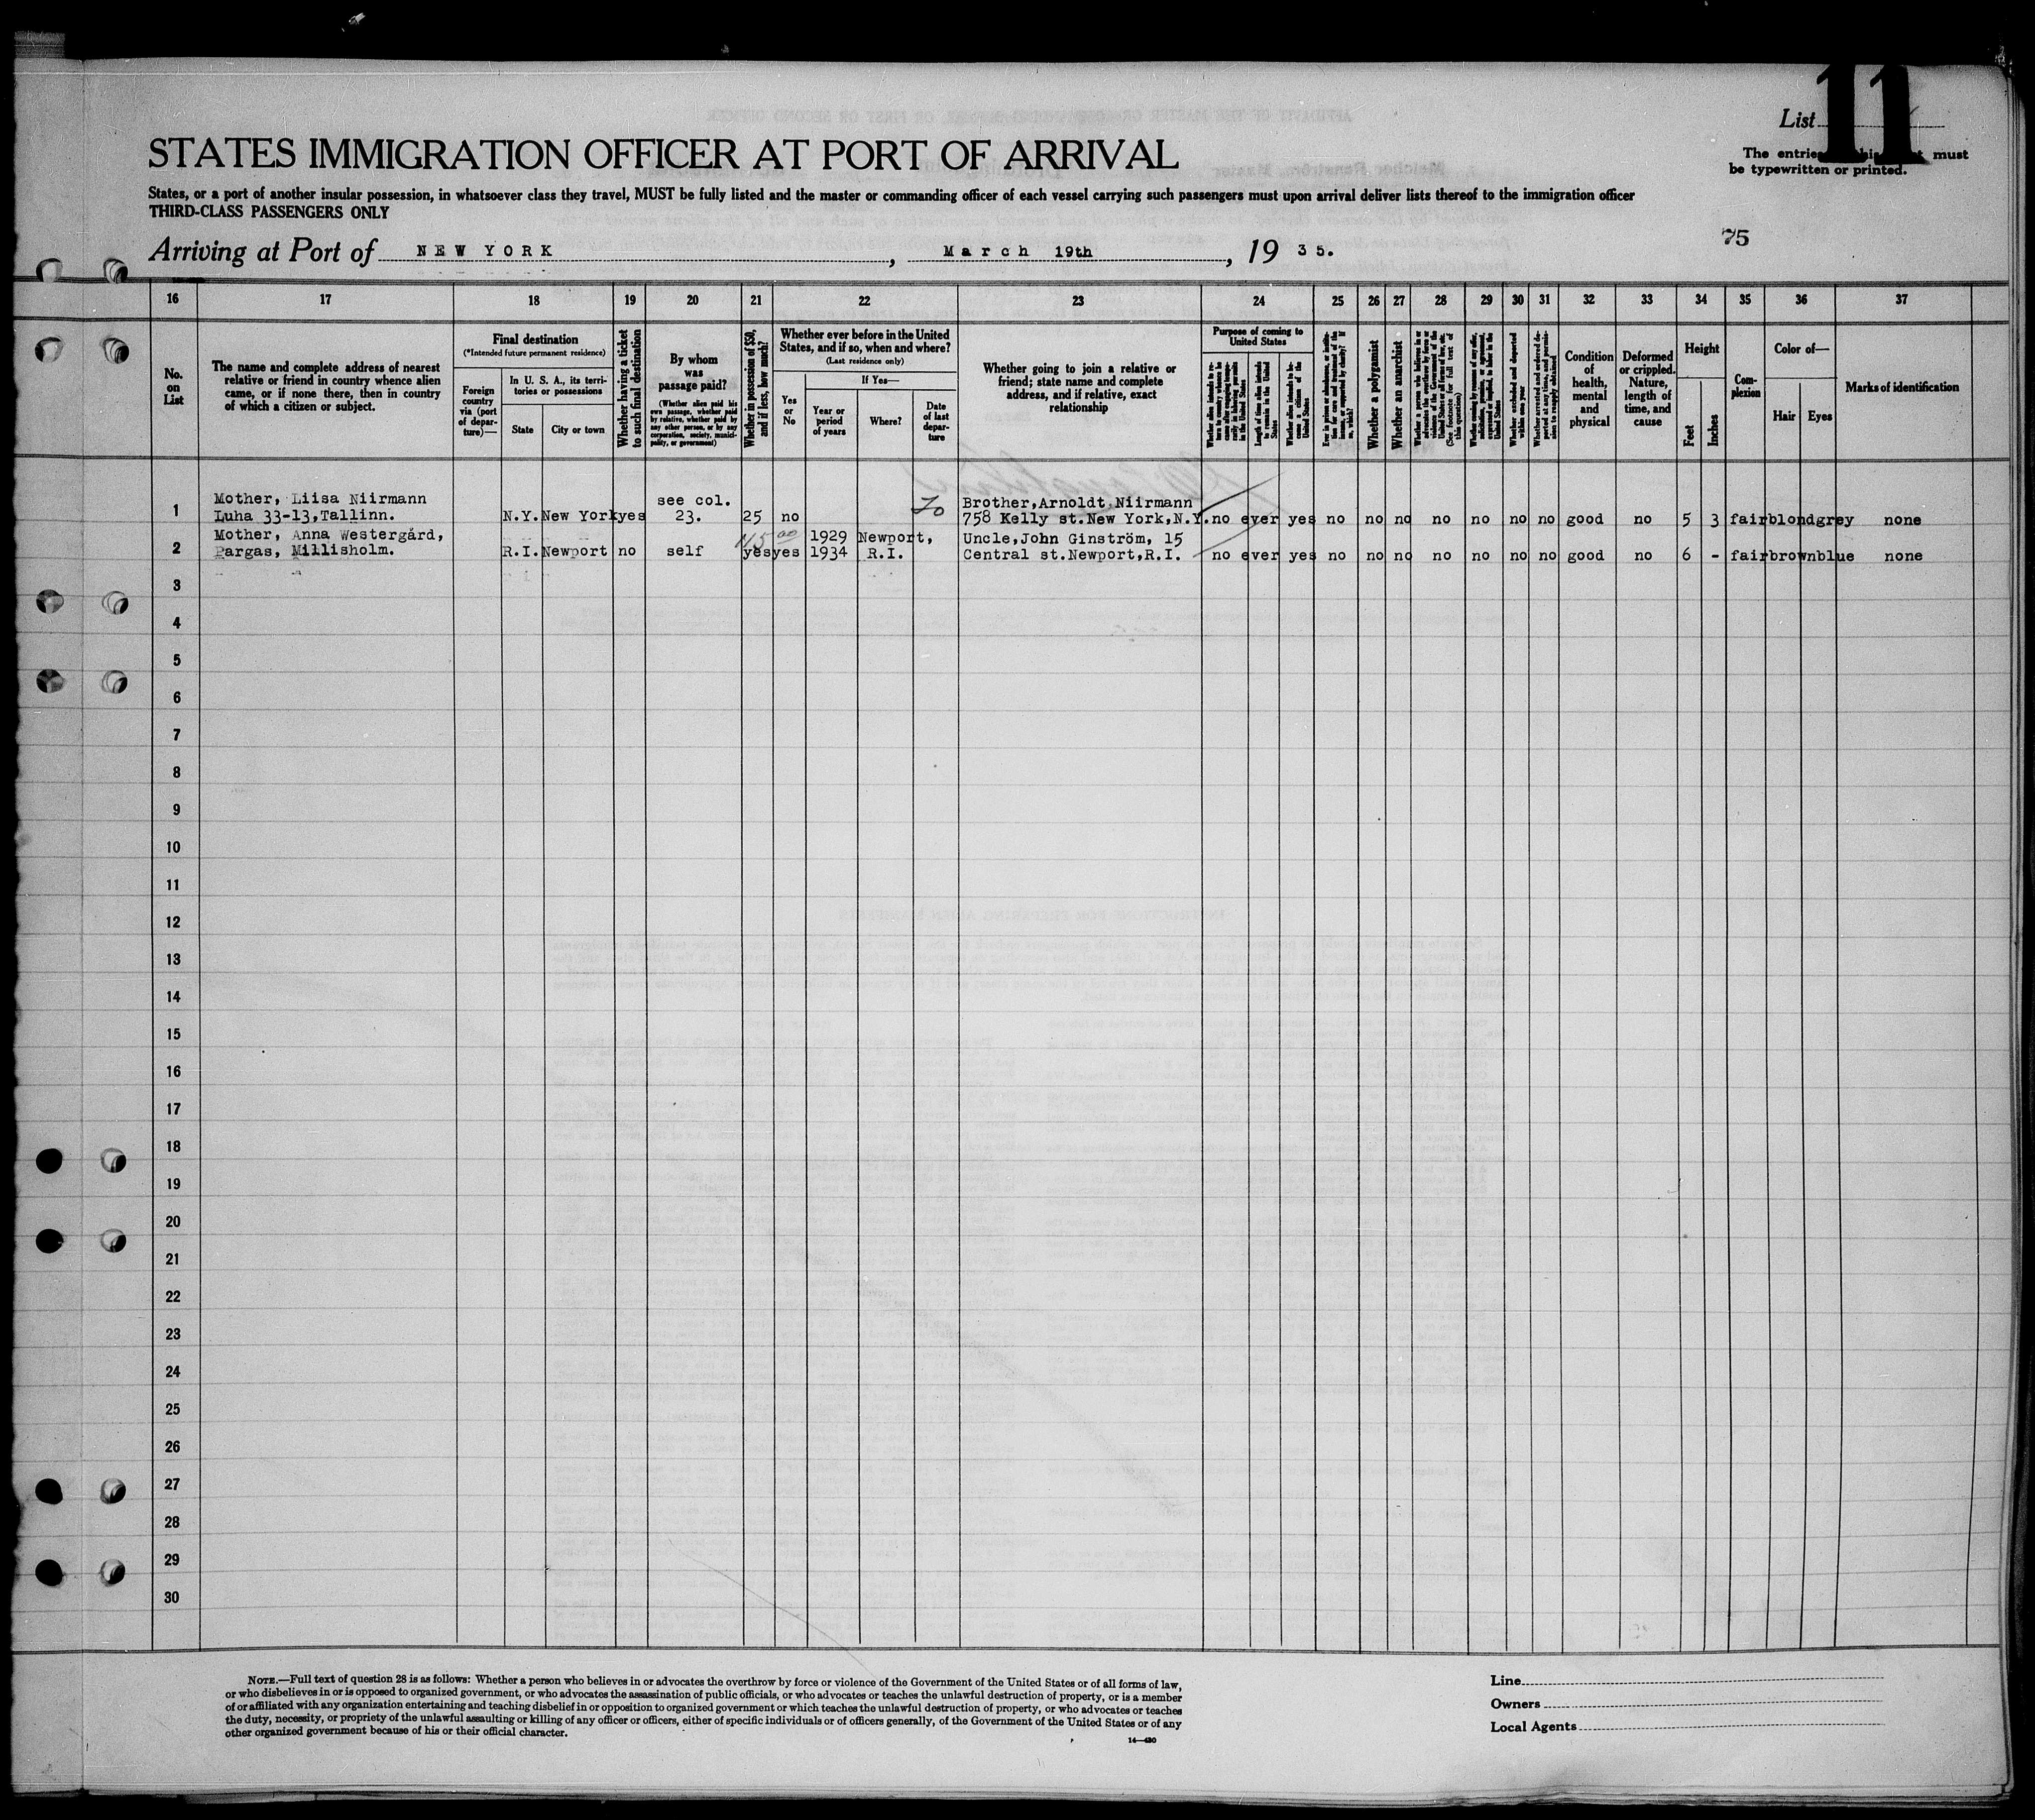 11
List
The entries must
be typewritten or printed.
STATES IMMIGRATION OFFICER AT PORT OF ARRIVAL
States, or a port of another insular possession, in whatsoever class they travel, MUST be fully listed and the master or commanding officer of each vessel carrying such passengers must upon arrival deliver lists thereof to the immigration officer
THIRD-CLASS PASSENGERS ONLY
75
Arriving at Port of NEW YORK, March 19th, 19 35.
16 17 18 19 20 21 22 23 24 25 26 27 28 29 30 31 32 33 34 35 36 37
No. on List
The name and complete address of nearest
relative or friend in country whence alien
came, or if none there, then in country
of which a citizen or subject.
Final destination
(*Intended future permanent residence)
Foreign country via (port of departure)—
In U. S. A., its territories or possessions
State
City or town
Whether having a ticket to such final destination
By whom was passage paid?
(Whether alien paid his own passage, whether paid by relative, whether paid by any other person, or by any corporation, society, municipality, or government)
Whether in possession of $50, and if less, how much?
Whether ever before in the United
States, and if so, when and where?
(Last residence only)
Yes or No
If Yes—
Year or period of years
Where?
Date of last departure
Whether going to join a relative or
friend; state name and complete
address, and if relative, exact
relationship
Purpose of coming to United States
Length of time alien intends to remain in the United States
Whether alien intends to become a citizen of the United States
Whether a polygamist
Whether an anarchist
Whether excluded and deported within one year
Condition of health, mental and physical
Deformed or crippled. Nature, length of time, and cause
Height
Feet
Inches
Complexion
Color of—
Hair
Eyes
Marks of identification
1 Mother, Liisa Niirmann see col. Brother,Arnoldt Niirmann
Luha 33-13,Tallinn. N.Y. New York yes 23. 25 no 758 Kelly st.New York,N.Y. no ever yes no no no no no no no good no 5 3 fair blond grey none
2 Mother, Anna Westergård, 1929 Newport, Uncle,John Ginström, 15
Pargas, Millisholm. R.I. Newport no self yes yes 1934 R.I. Central st.Newport,R.I. no ever yes no no no no no no no good no 6 - fair brown blue none
3
4
5
6
7
8
9
10
11
12
13
14
15
16
17
18
19
20
21
22
23
24
25
26
27
28
29
30
NOTE.—Full text of question 28 is as follows: Whether a person who believes in or advocates the overthrow by force or violence of the Government of the United States or of all forms of law,
or who disbelieves in or is opposed to organized government, or who advocates the assassination of public officials, or who advocates or teaches the unlawful destruction of property, or is a member
of or affiliated with any organization entertaining and teaching disbelief in or opposition to organized government or which teaches the unlawful destruction of property, or who advocates or teaches
the duty, necessity, or propriety of the unlawful assaulting or killing of any officer or officers, either of specific individuals or of officers generally, of the Government of the United States or of any
other organized government because of his or their official character.
14—430
Line
Owners
Local Agents